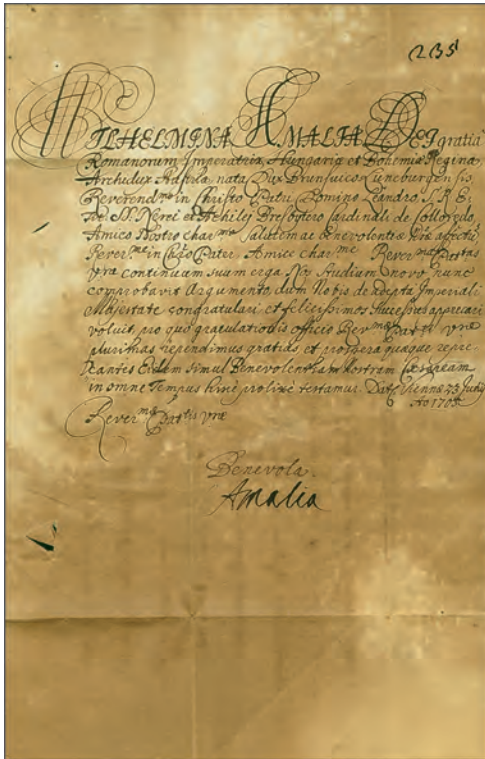 235
WILHELMINA AMALIA DEI gratia
Romanorum Imperatrix, Hungariæ et Bohemiæ Regina,
Archidux Austriæ, nata Dux Brunsuico Luneburgensis,
Reverend.mo in Christo Patri Domino Leandro, S. R. E.
Tit. SS. Nerei et Achilej Presbytero Cardinali de Colloredo,
Amico Nostro char.mo Salutem ac benevolentiæ Nræ affectū,
Rever.me in Chr̄o Pater Amice char.me Rever.ma Pattas
vra continuam suum erga Nos Studium novo nunc
comprobavit Argumento, dum Nobis de adepta Imperiali
Majestate congratulari et felicissimos Successus apprecari
voluit, pro quo gratulationis officio Rev.mæ Patti vræ
plurimas rependimus gratias, et prospera quæque repre
cantes Eidem simul Benevolentiam Nostram Cæsaream
in omne Tempus hinc prolixe testamur. Dat. Viennæ Junij
Ao 1705
Rever.mæ Pattis vræ
Benevola.
Amalia